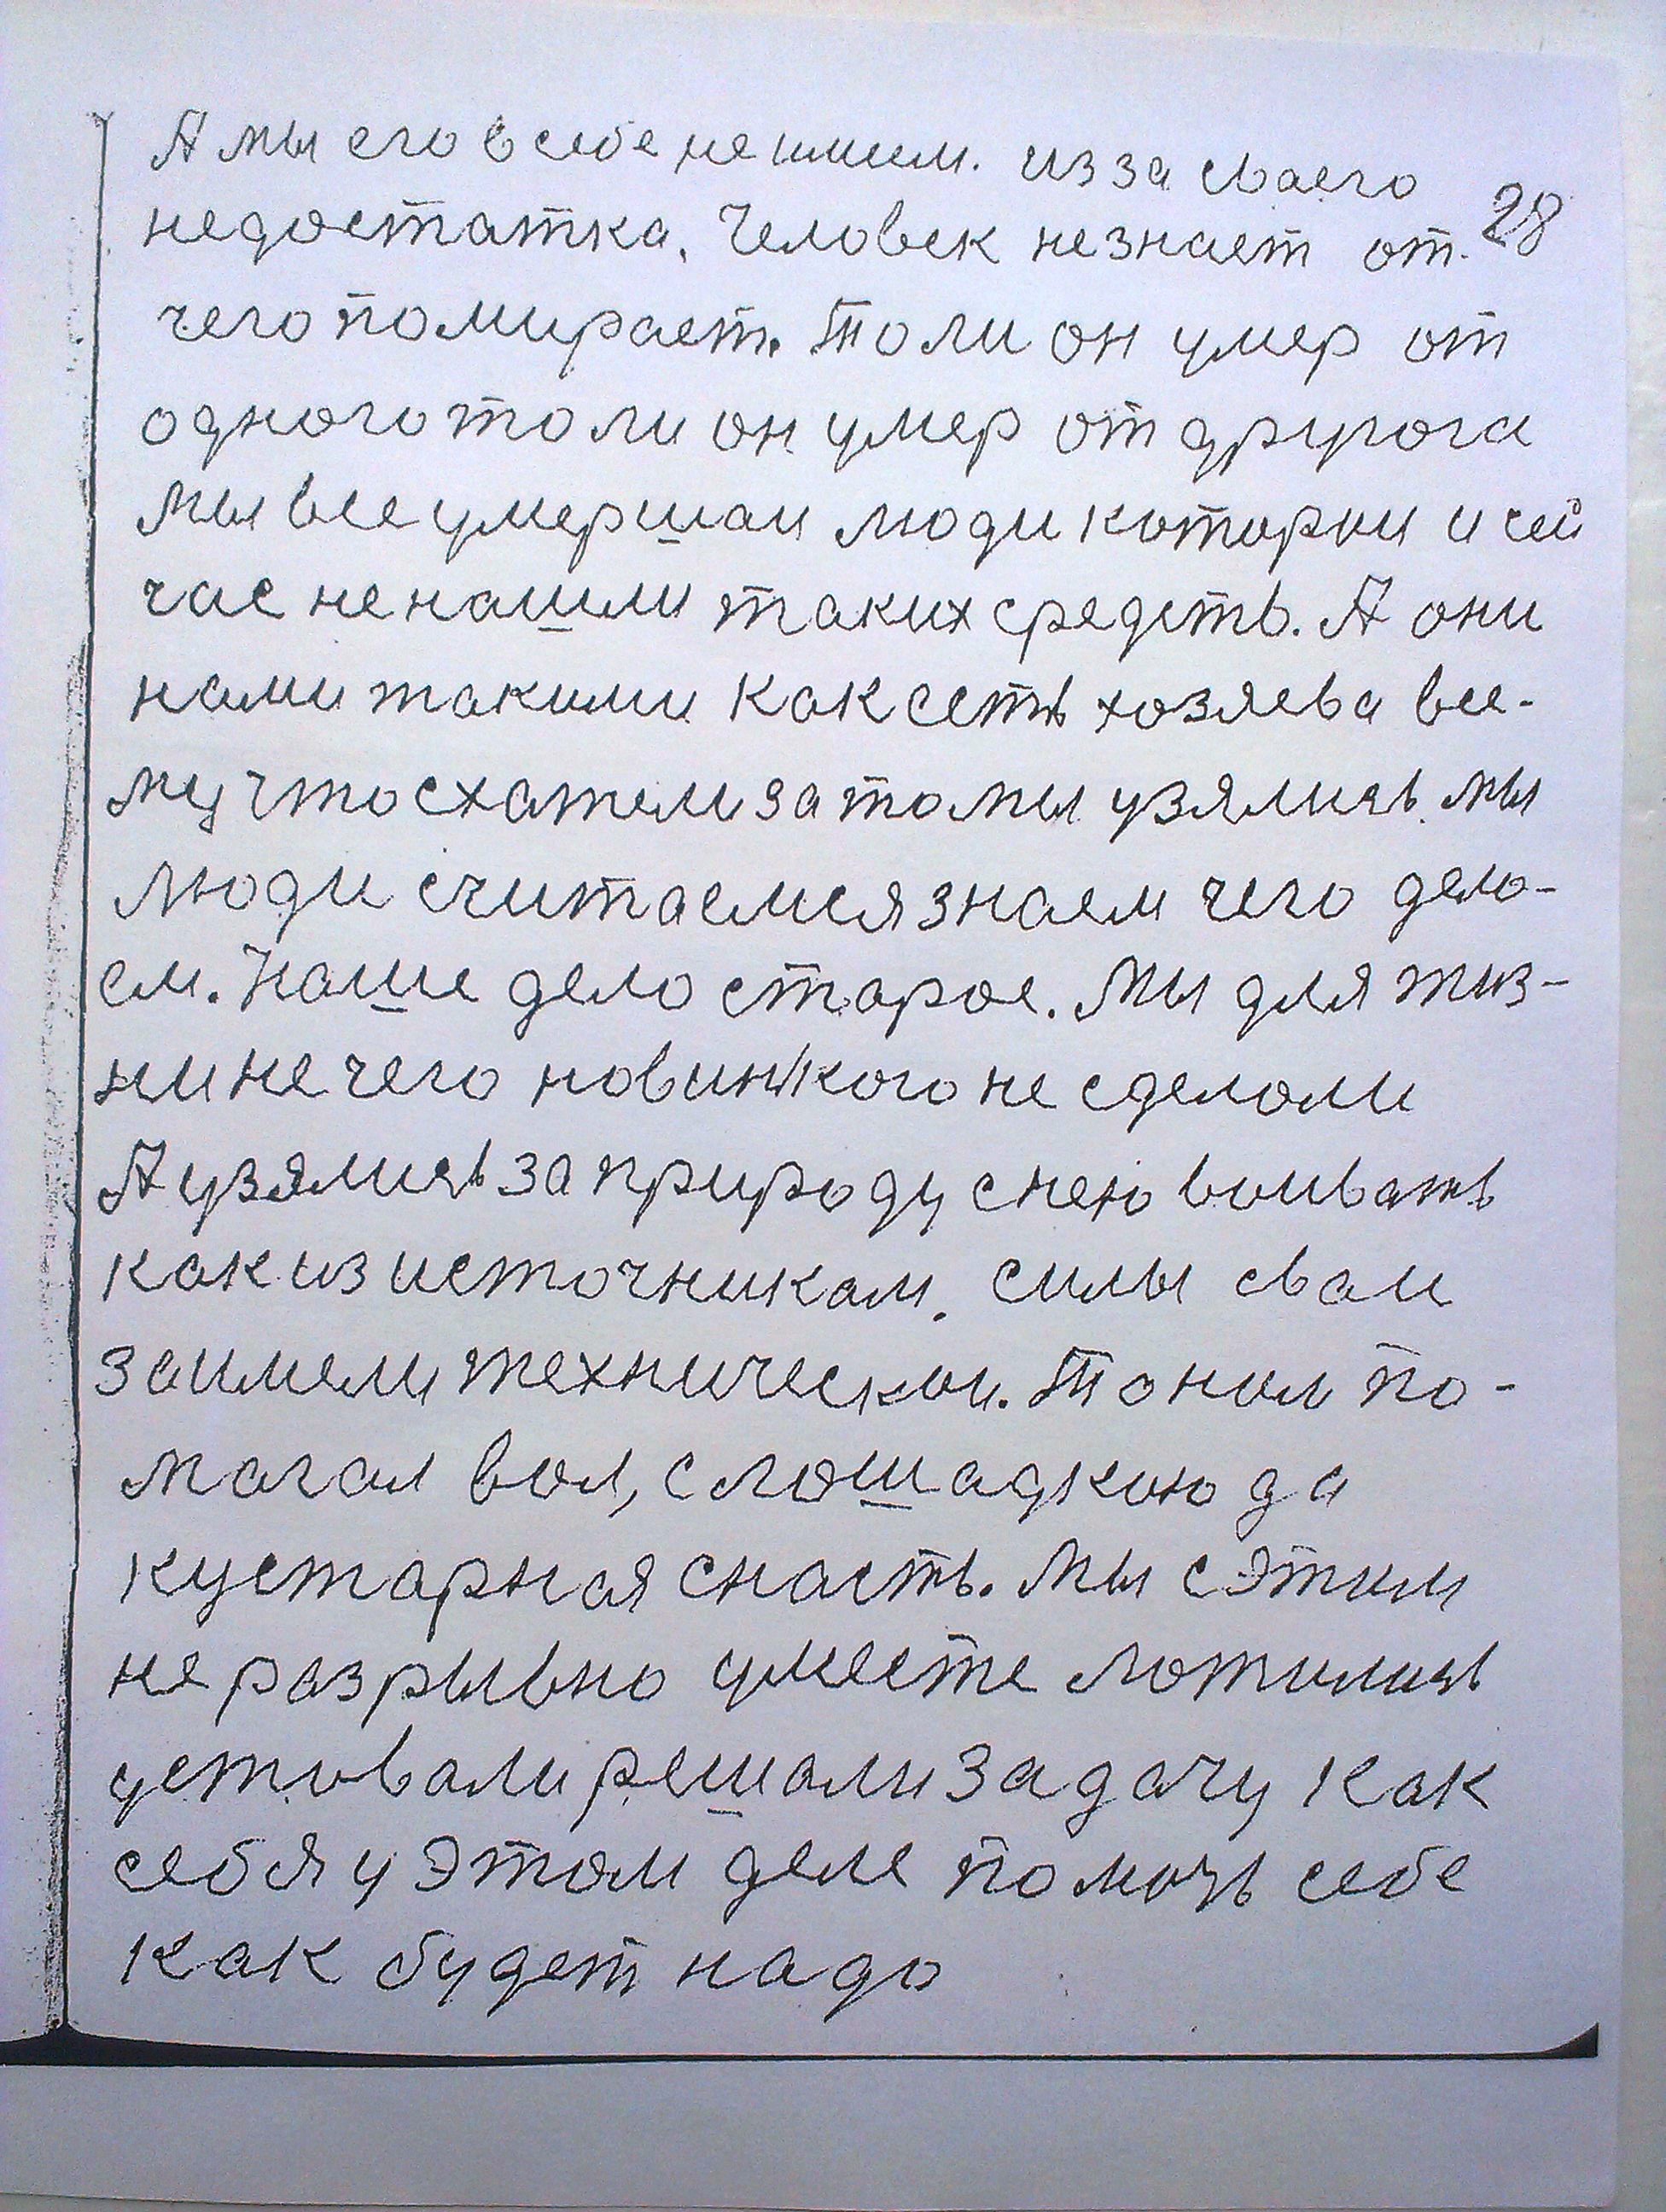 А мы его в себе не имеем. из за сваего
недостатка. Человек незнает от. 28
чего помирает. То ли он умер от
одного то ли он умер от другога
Мы все умершаи люди которыи и сей
час ненашли таких средств. А они
нами такими как есть хозяева все-
му что схатели за то мы узялись. мы
люди считаемся знаем чего дела-
ем. Наше дело старое. Мы для жиз-
ни не чего новинкого не сделали
А узялись за природу снею воивать
как из источникам. силы сваи
заимели техническаи. То ним по-
магал вол, с лошадкою да
кустарная снасть. Мы с этим
не разрывно уместе лотились
устовали решали задачу как
себя у этом деле помочь себе
как будет надо